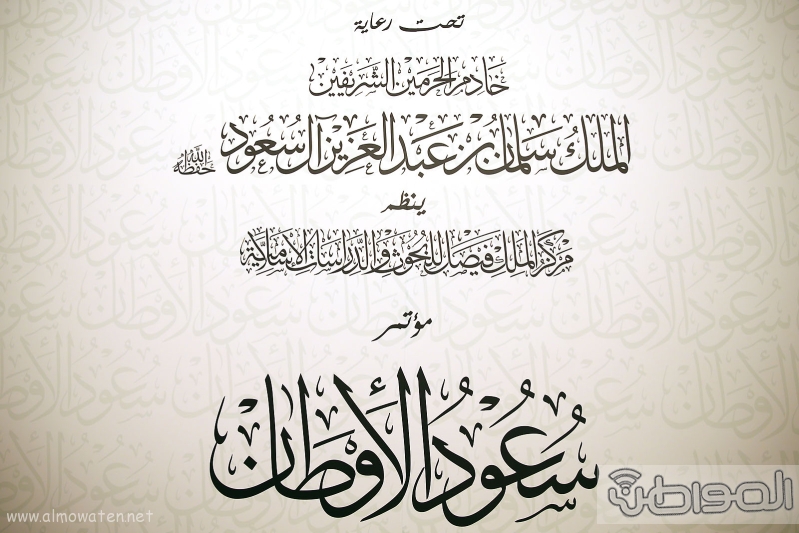 تحت رعاية
خادم الحرمين الشريفين
الملك سلمان بن عبد العزيز آل سعود حفظه الله
ينظم
مركز الملك فيصل للبحوث والدراسات الإسلامية
مؤتمر
سعود الأوطان
المواطن
www.almowaten.net